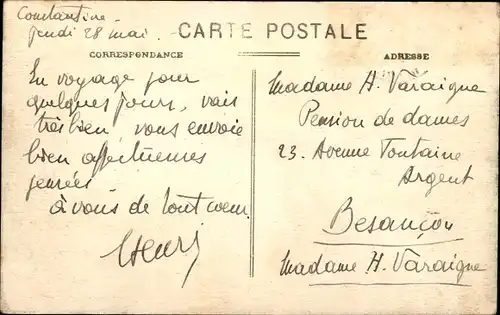 Constantine
jeudi 28 mai.
CARTE POSTALE
CORRESPONDANCE
En voyage pour
quelques jours, vais
très bien, vous envoie
bien affectueuses
pensées
à vous de tout coeur
Henri
ADRESSE
Madame H. Varaigne
Pension de dames
23. Avenue Fontaine
Argent
Besançon
Madame H. Varaigne